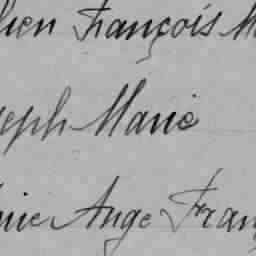 hien François M
seph Marie
nie Ange Fran